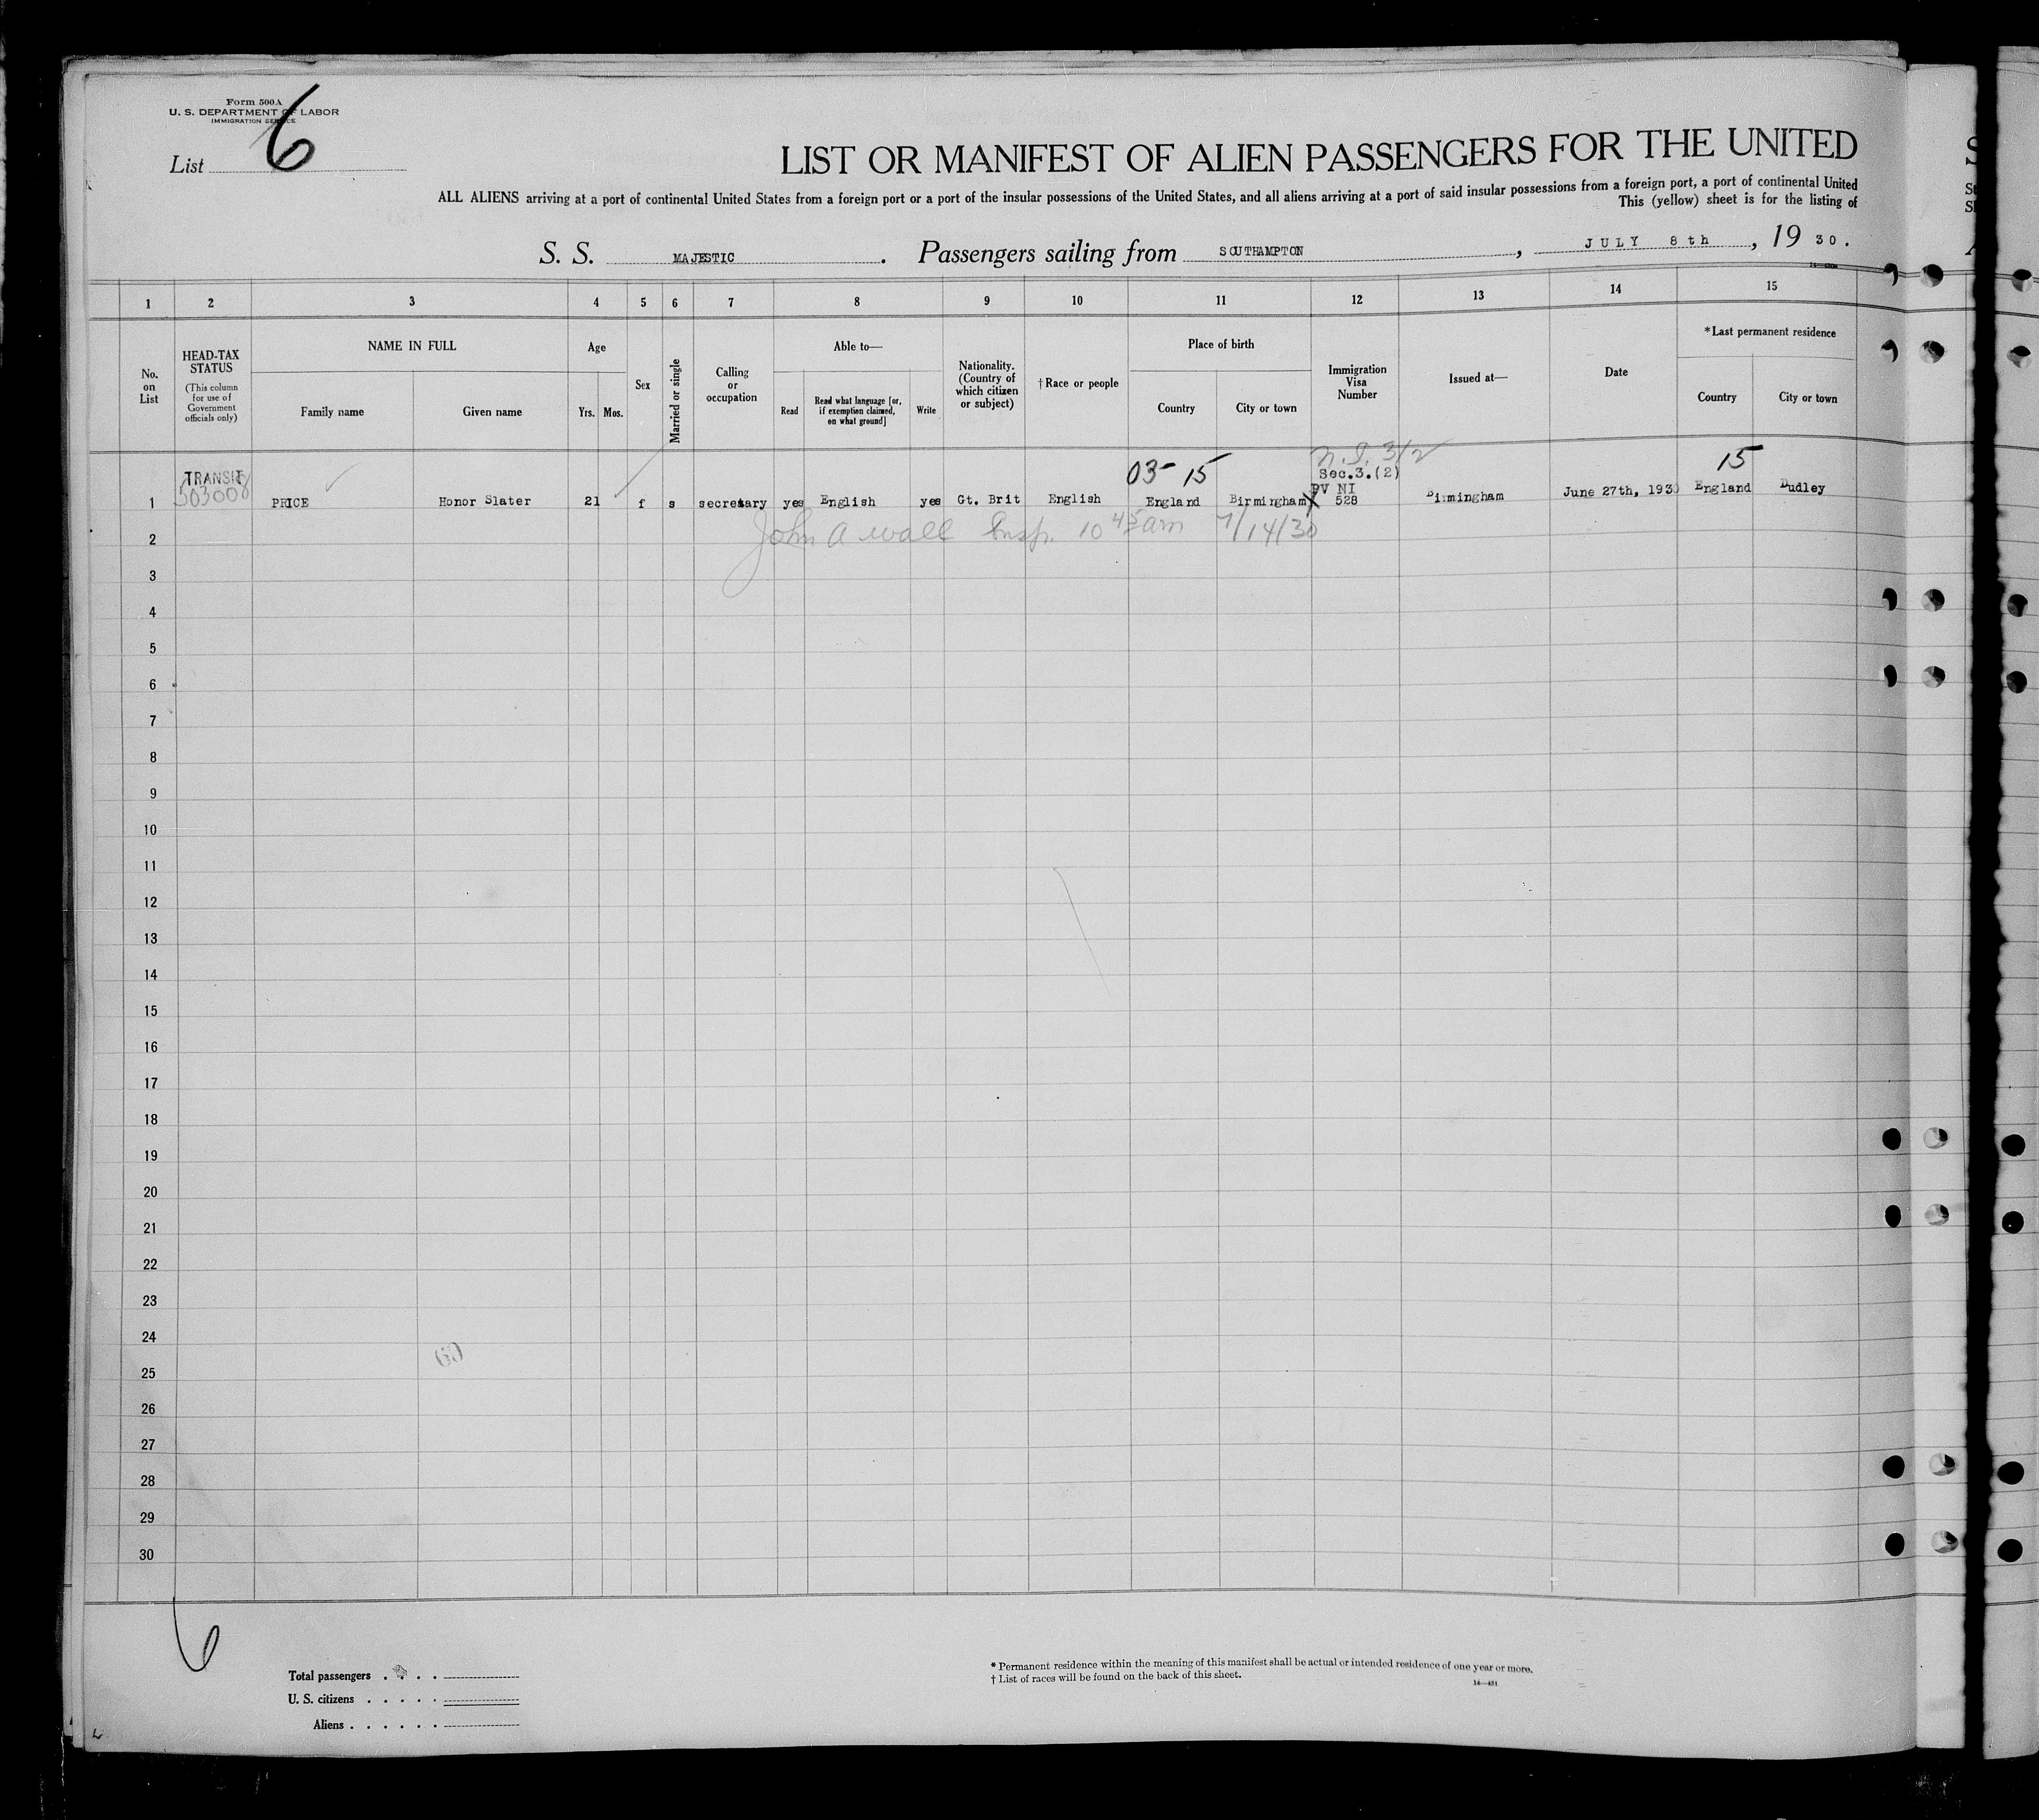 Form 500A
U. S. DEPARTMENT OF LABOR
IMMIGRATION SERVICE
List 6
LIST OR MANIFEST OF ALIEN PASSENGERS FOR THE UNITED
ALL ALIENS arriving at a port of continental United States from a foreign port or a port of the insular possessions of the United States, and all aliens arriving at a port of said insular possessions from a foreign port, a port of continental United
This (yellow) sheet is for the listing of
S. S. MAJESTIC. Passengers sailing from SOUTHAMPTON, JULY 8th, 19 30.
1 2 3 4 5 6 7 8 9 10 11 12 13 14 15
No. on List
HEAD-TAX STATUS
(This column for use of Government officials only)
NAME IN FULL
Family name Given name
Age
Yrs. Mos.
Sex
Married or single
Calling or occupation
Able to—
Read Read what language [or, if exemption claimed, on what ground] Write
Nationality. (Country of which citizen or subject)
†Race or people
Place of birth
Country City or town
Immigration Visa Number
Issued at—
Date
*Last permanent residence
Country City or town
N.I. 3/2
TRANSIT 03-15 Sec.3.(2) 15
503008 PV NI
1 PRICE Honor Slater 21 f s secretary yes English yes Gt. Brit English England Birmingham X 528 Birmingham June 27th, 1930 England Dudley
2 John A Wall Insp. 10 45 am 7/14/30
3
4
5
6
7
8
9
10
11
12
13
14
15
16
17
18
19
20
21
22
23
24
25
26
27
28
29
30
6
Total passengers . . . .
U. S. citizens . . . . .
Aliens . . . . . .
* Permanent residence within the meaning of this manifest shall be actual or intended residence of one year or more.
† List of races will be found on the back of this sheet.